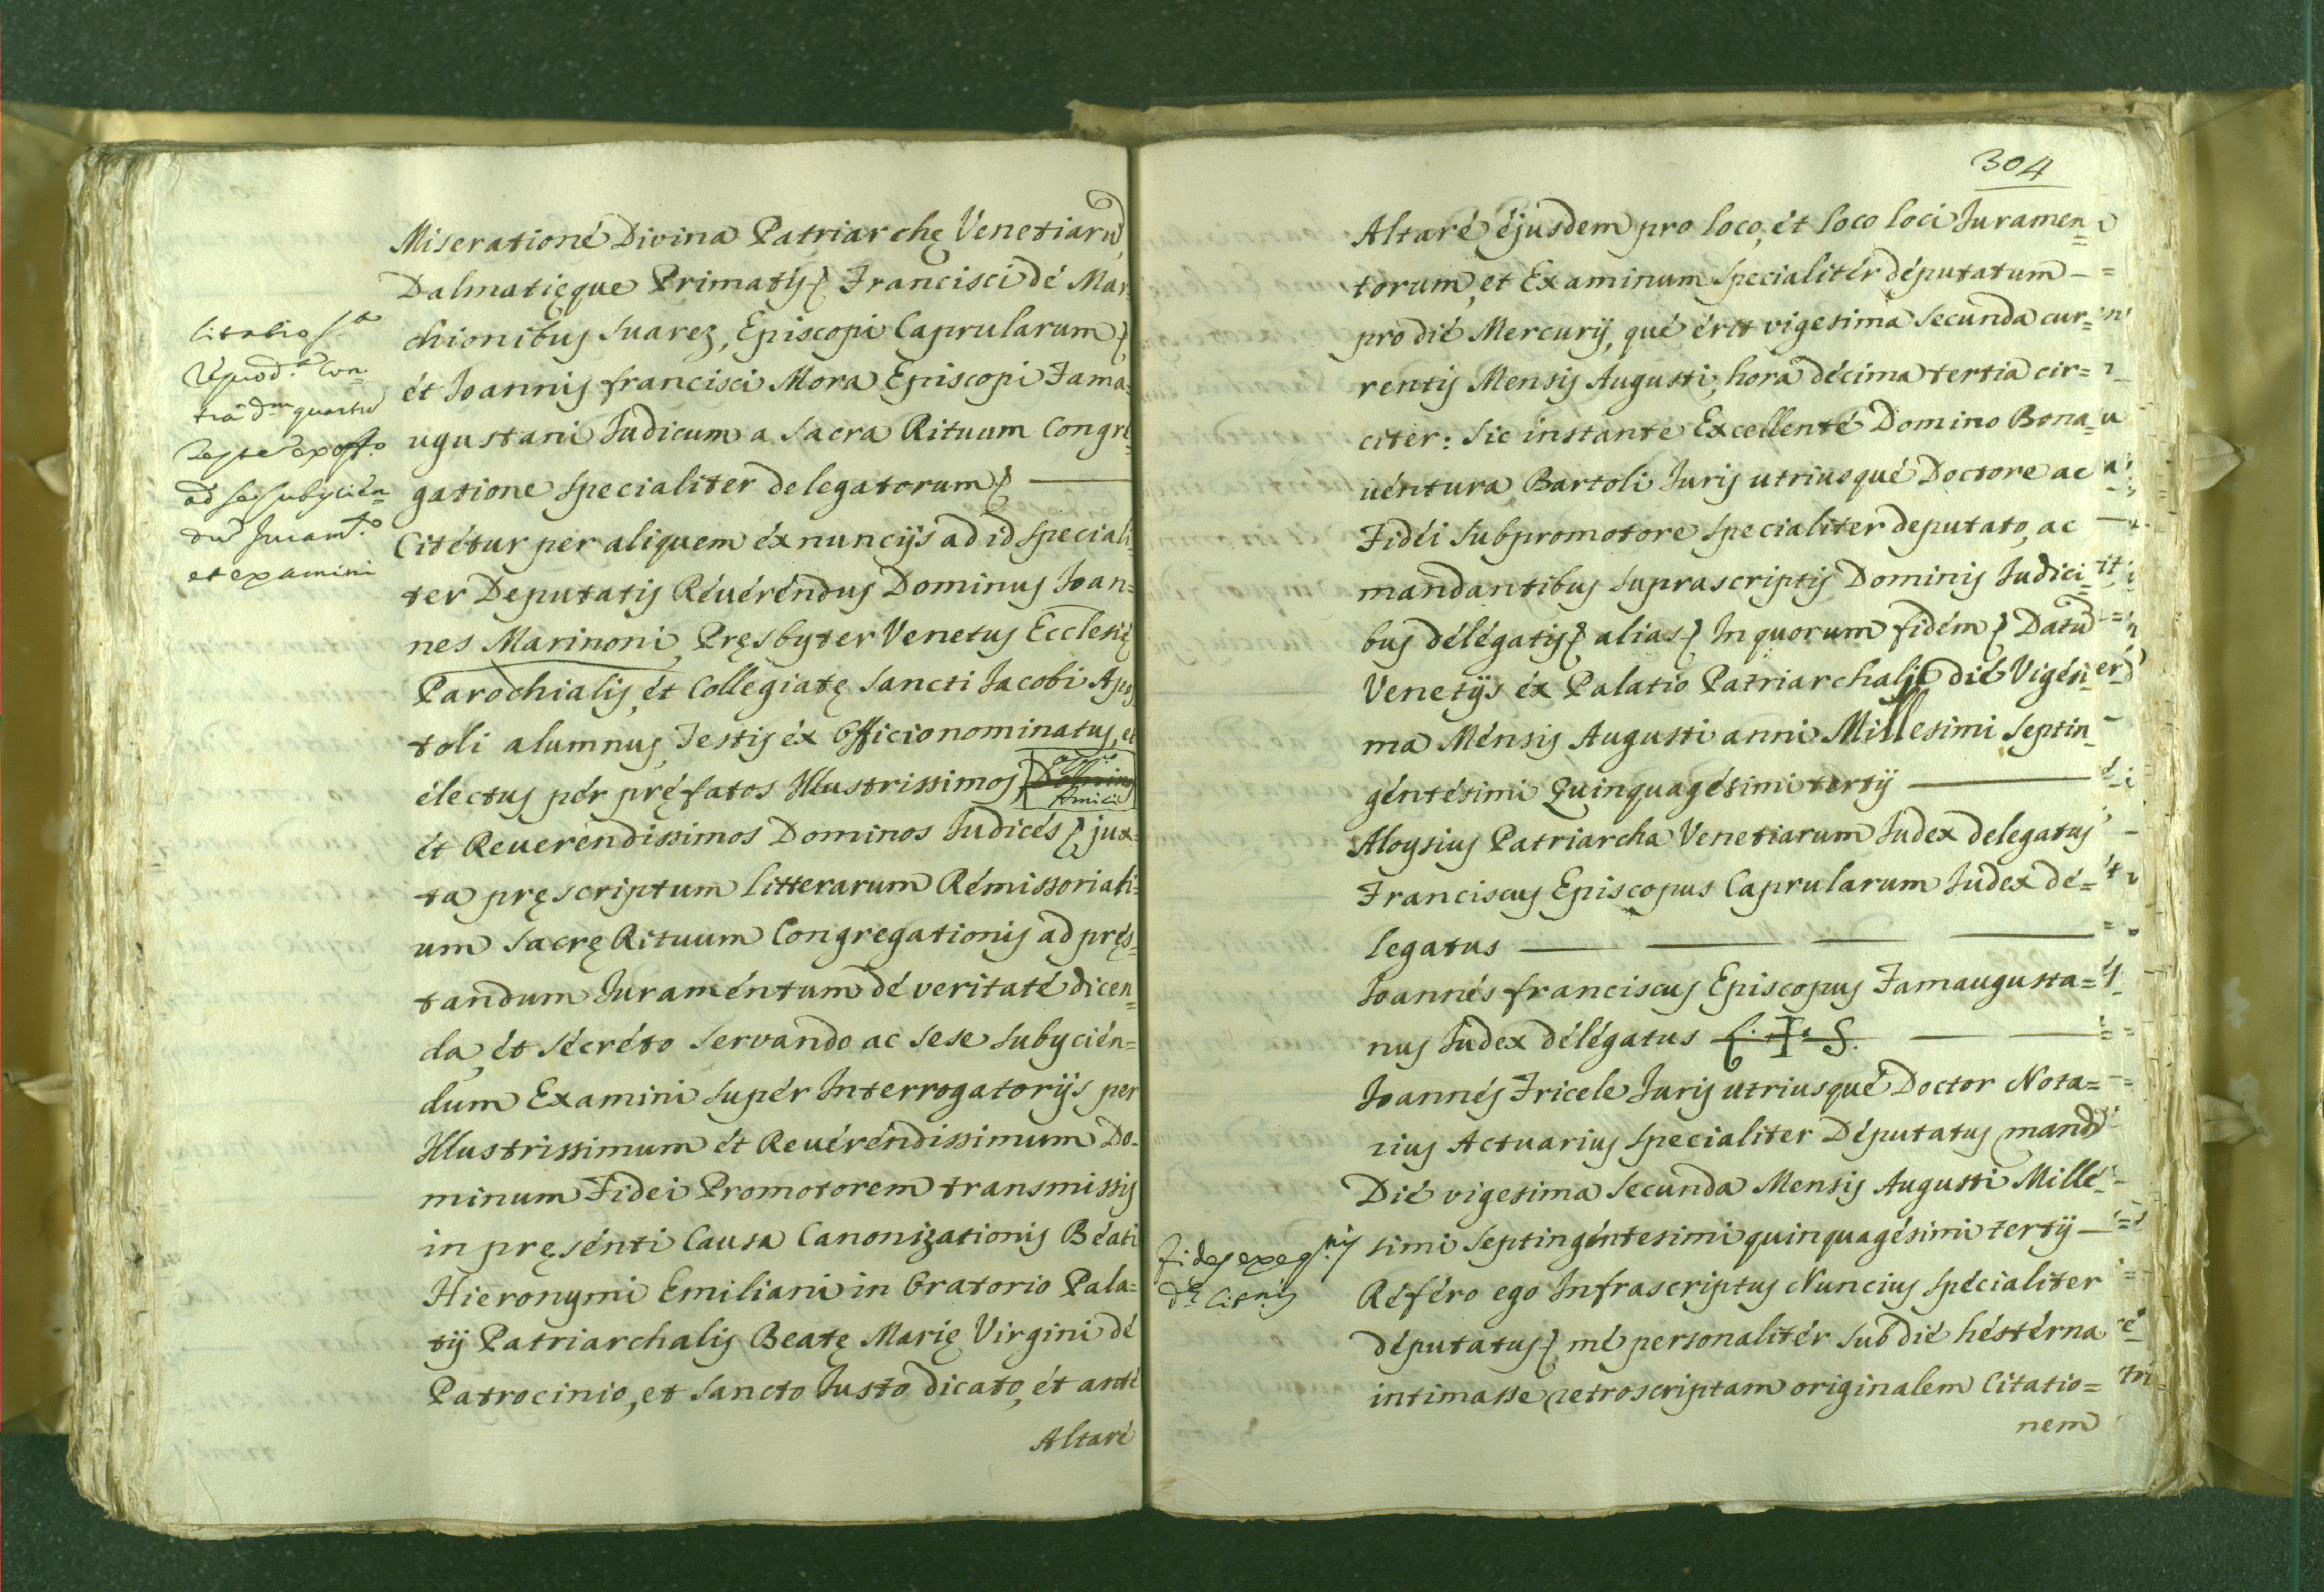 Miserationé Divina Patriarchę Venetiarũ,
Dalmatięque Primatis Francisci dé Mar=
chionibus Suarez, Episcopi Caprularum
ét Joannis francisci Mora Episcopi Fama=
ugustani Judicum a Sacra Rituum Congre=
gatione specialiter delegatorum
Citétur per aliquem éx nuncijs ad id speciali=
ter Deputatis Révéréndus Dominus Joan=
nes Marinoni, Pręsbyter Venetus Ecclesię
Parochialis, ét Collegiatę Sancti Jacobi Apos=
toli alumnus, Testis éx Officio nominatus, et
électus pér pręfatos Illustrissimos
ét Reverendissimos Dominos Judicés jux=
ta pręscriptum litterarum Rémissoriali=
um Sacrę Rituum Congregationis ad pręs=
tandum Juraméntum dé veritaté dicen=
da, ét sécréto servando ac sese subijcién=
dum Examini supér Interrogatorijs per
Illustrissimum ét Reuéréndissimum Do=
minum Fidei Promotorem transmissis
in pręsénti Causa Canonizationis Béati
Hieronymi Emiliani in Oratorio Pala=
tij Patriarchalis Beatę Marię Virgini dé
Patrocinio, et Sancto Justo dicato, ét anté
Altaré
et examini
304
Altaré éjusdem pro loco, ét loco loci Juramen=
torum, et Examinum specialitér députatum
pro dié Mercurij, qué érit vigesima secunda cur=
rentis Mensis Augusti, hora décima tertia cir=
citer: Sic instanté Excellenté Domino Bona=
uéntura Bartoli Juris utriusqué Doctore ac
Fidéi Subpromotore specialiter deputato, ac
mandantibus suprascriptis Dominis Judici=
bus délégatis alias In quorum fidém Datũ
Venetijs éx Palatio Patriarchali dié Vigési=
ma Ménsis Augusti anni Millesimi Septin=
géntésimi Quinquagésimi tertij
Aloysius Patriarcha Venetiarum Judex delegatus
Franciscus Episcopus Caprularum Judex dé=
legatus
Joannés franciscus Episcopus Famaugusta=
nus Judex délégatus L. + S.
Joannés Fricele Juris utriusqué Doctor Nota=
rius Actuarius specialiter Députatus mandᵗᵒ
Dié vigesima secunda Mensis Augusti Millé=
simi Septingéntesimi quinquagésimi tertij
Référo ego Infrascriptus Nuncius spécialiter
députatus mé personalitér sub dié héstérna
intimasse retroscriptam originalem Citatio=
nem